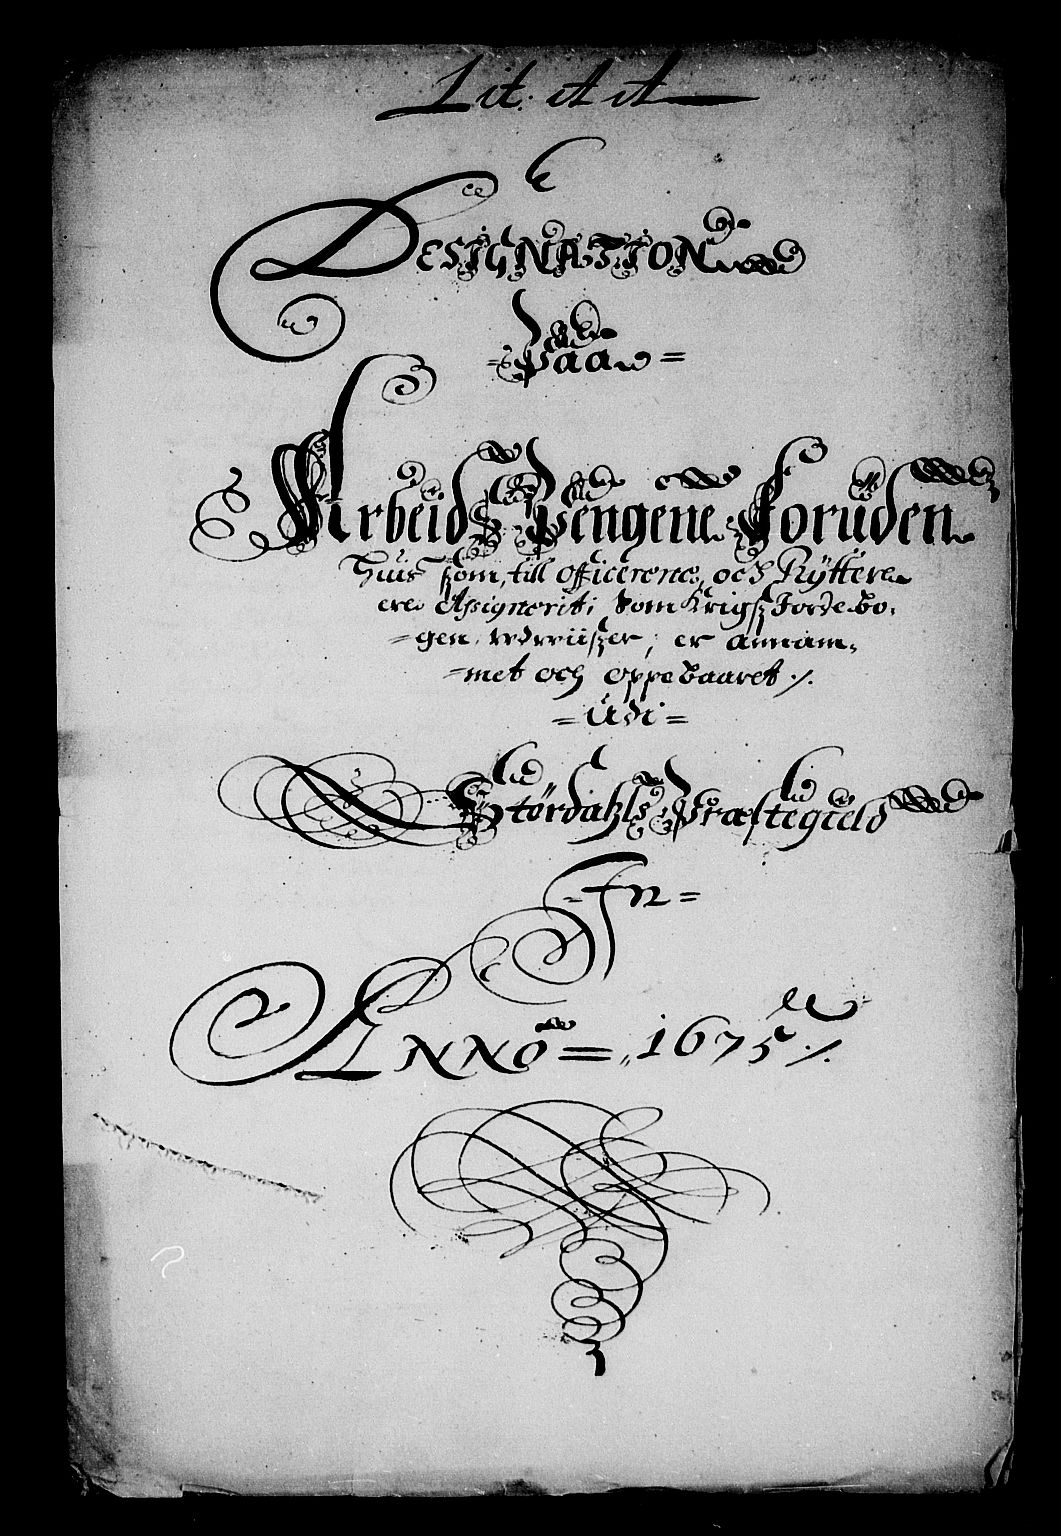 Lit: A A
DESIGNATION
= Paa =
Arbeids Pengene Foruden
huis som, till officererne, och Rÿttere
ere Assignerit; som Krigsz Jordebo-
= gen. udviiszer; er annam-
= met och oppebaaret ./.
= Udi =
Størdahls Præstegield
= Fr =
ANNO = 1675 ./.